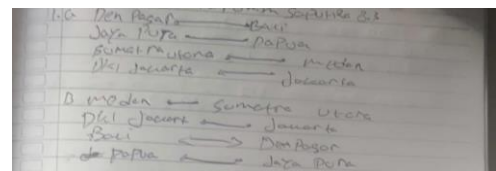 1.a Den Pasar Bali
Jaya Pura Papua
Sumatra utara medan
Dkl Jacarta Jacarta
B medan Sumatra Utara
Dkl Jacart Jacarta
Bali Den Pasar
Papua Jaya Pura